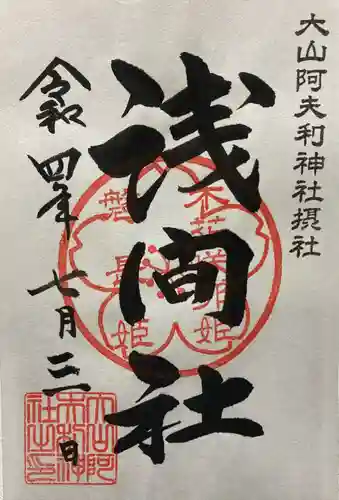 大山阿夫利神社摂社
浅间社
令和四年七月三日
木花咲耶姫
磐長姫
大山阿
夫利神
社之印